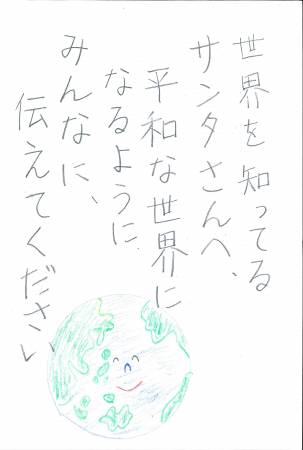 世界を知ってる
サンタさんへ、
平和な世界に
なるように
みんなに、
伝えてください